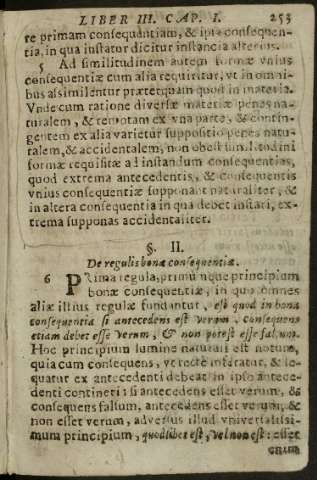 LIBER III. CAP. I. 253
re primam consequentiam, & ipsa consequen-
tia, in qua instatur dicitur instancia alterius.
5 Ad similitudinem autem formæ vnius
consequentiæ cum alia requiritur, vt in omni-
bus assimilentur præterquam quod in materia.
Vnde cum ratione diversæ materiæ penes na-
turalem, & remotam ex vna parte, & contin-
gentem ex alia varietur suppositio penes natu-
ralem, & accidentalem, non obest similitudini
formæ requisitæ ad instandum consequentias,
quod extrema antecedentis, & consequentis
vnius consequentiæ supponant naturaliter, &
in altera consequentia in qua debet instari, ex-
trema supponas accidentaliter.
§. II.
De regulis bonæ consequentiæ.
6 Prima regula, primùmque principium
bonæ consequentiæ, in quo omnes
aliæ illius regulæ fundantur, est quod in bona
consequentia si antecedens est verum, consequens
etiam debet esse verum, & non potest esse falsum.
Hoc principium lumine naturali est notum,
quia cum consequens, vt rectè inferatur, & se-
quatur ex antecedenti debeat in ipso antece-
denti contineri: si antecedens esset verum, &
consequens falsum, antecedens esset verum, &
non esset verum, adversus illud vniversalissi-
mum principium, quodlibet est, vel non est: esset